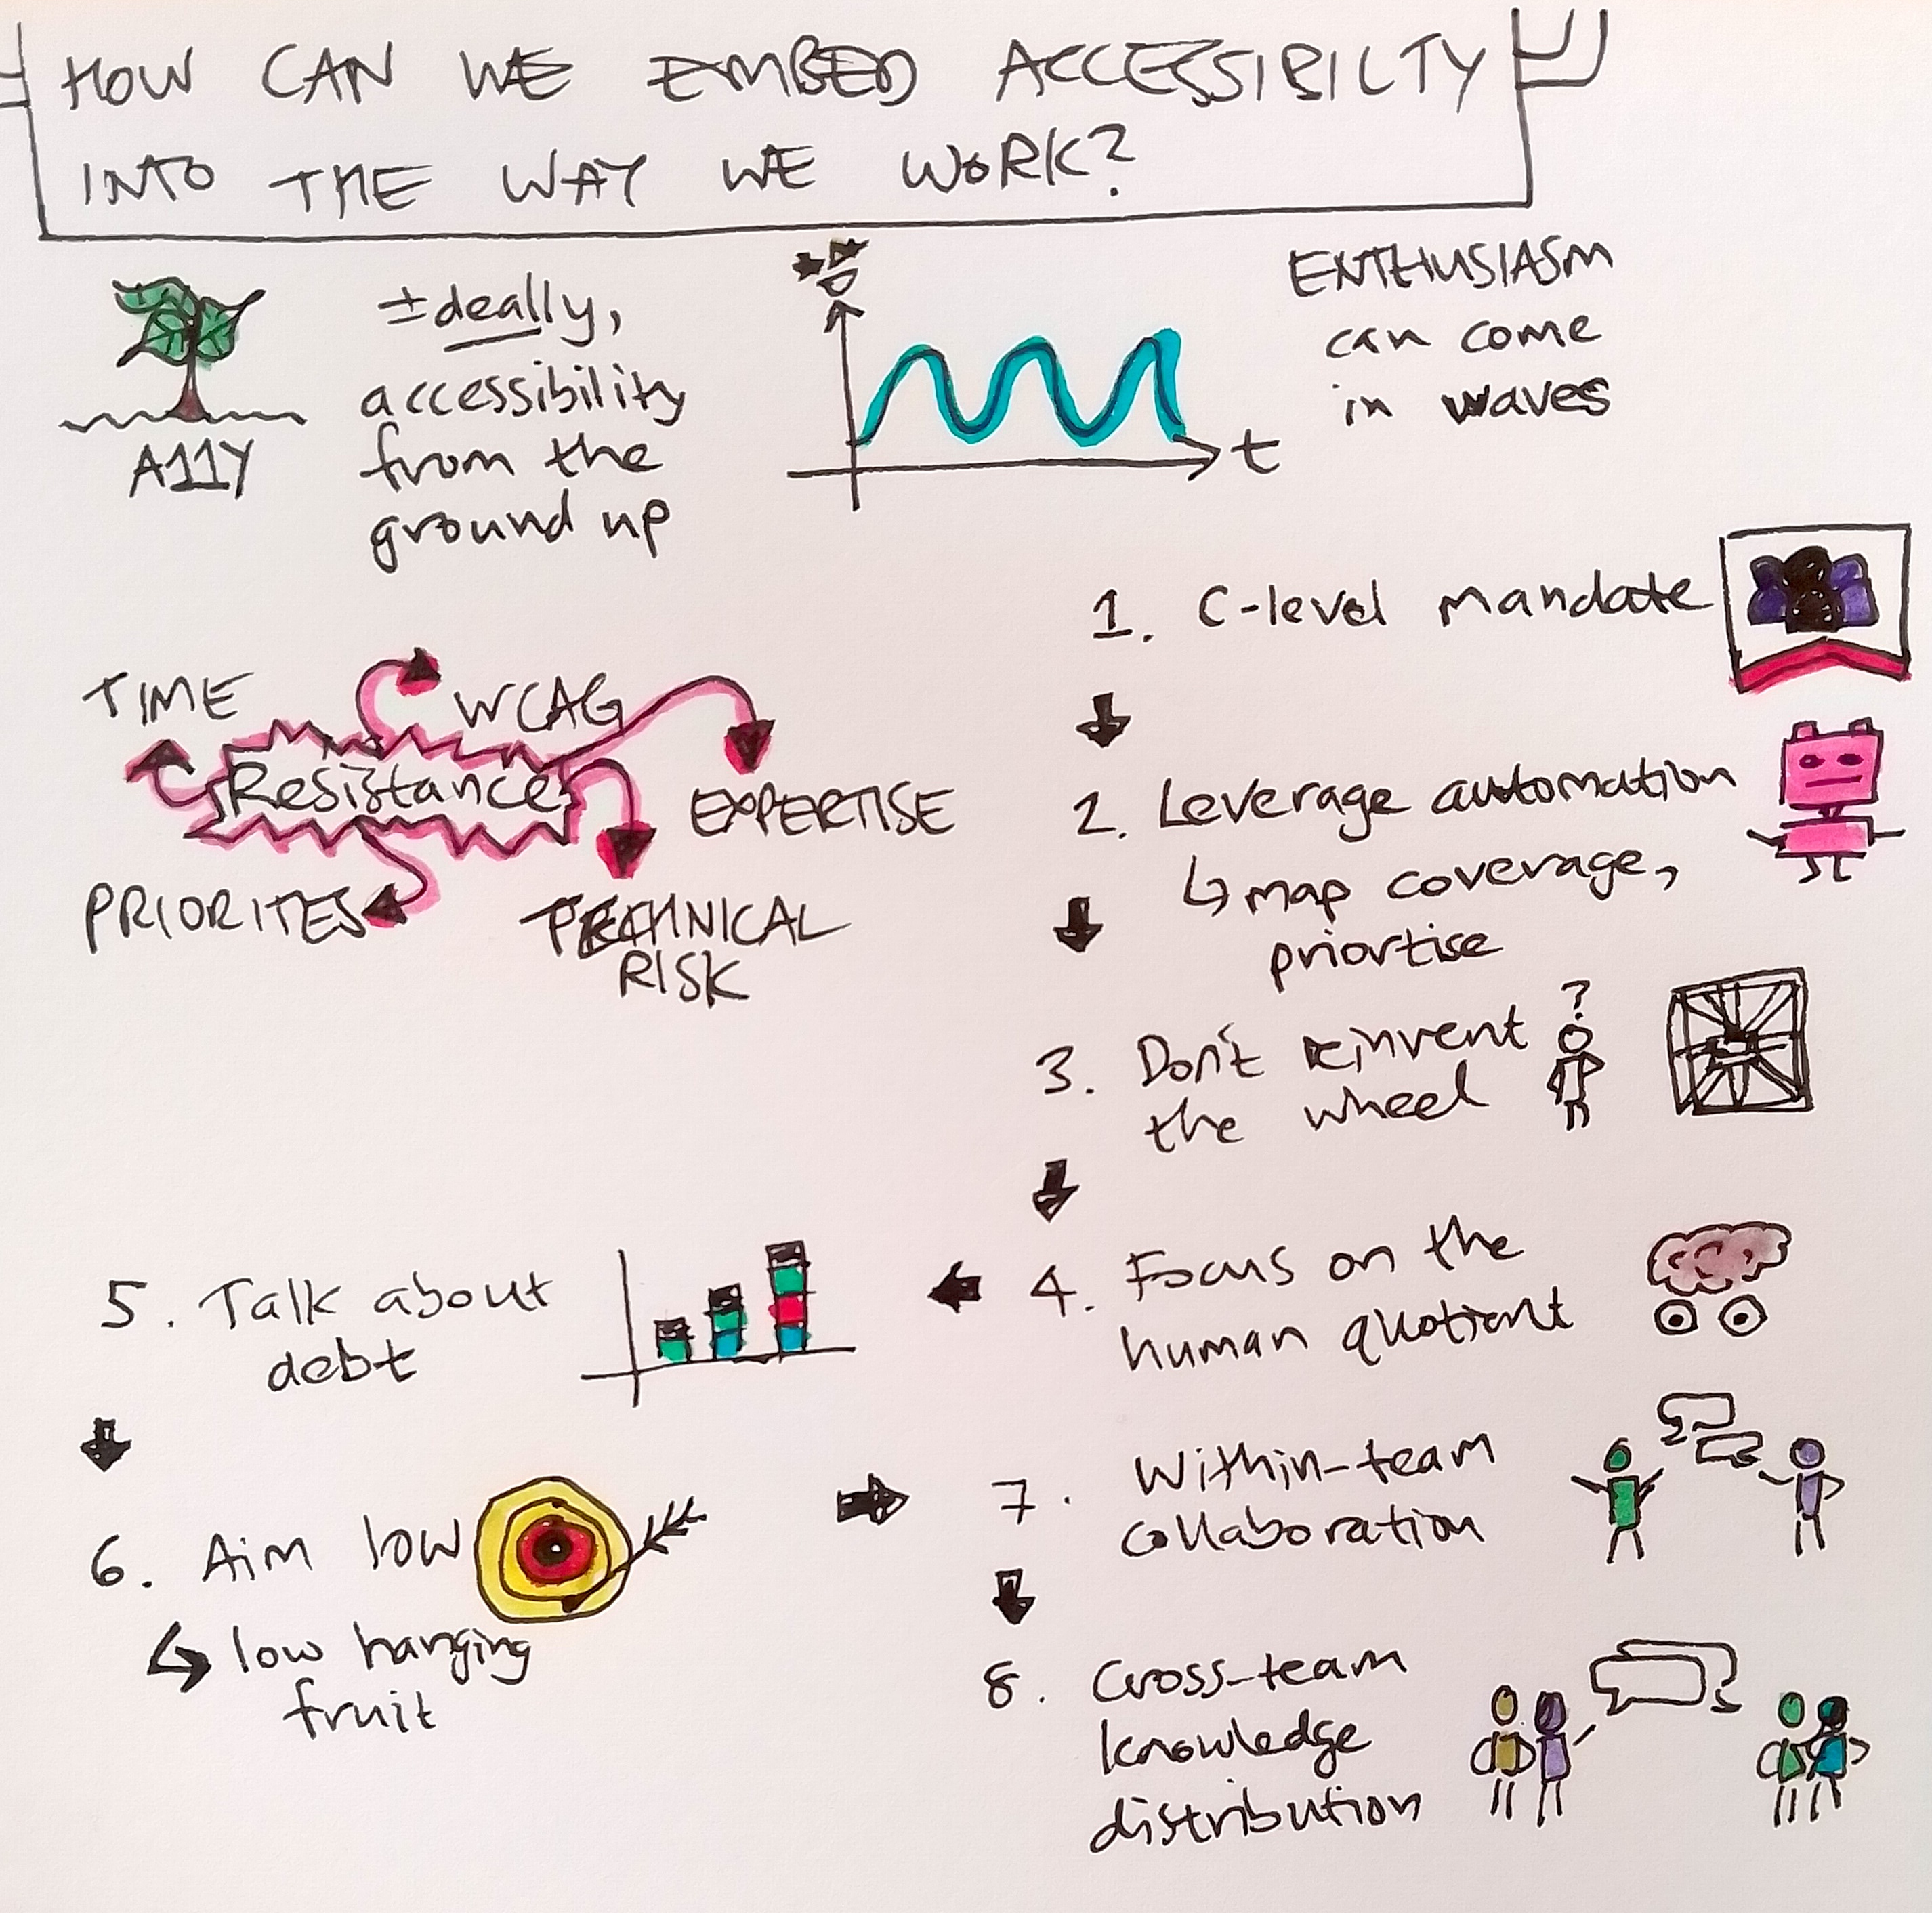 HOW CAN WE EMBED ACCESSIBILTY
INTO THE WAY WE WORK?
A11Y
Ideally,
accessibility
from the
ground up
t
ENTHUSIASM
can come
in waves
TIME
WCAG
Resistance
EXPERTISE
PRIORITES
TECHNICAL
RISK
1. C-level mandate
2. Leverage automation
↳ map coverage,
priortise
?
3. Don't reinvent
the wheel
4. Focus on the
human quotient
5. Talk about
debt
6. Aim low
↳ low hanging
fruit
7. Within-team
collaboration
8. Cross-team
knowledge
distribution